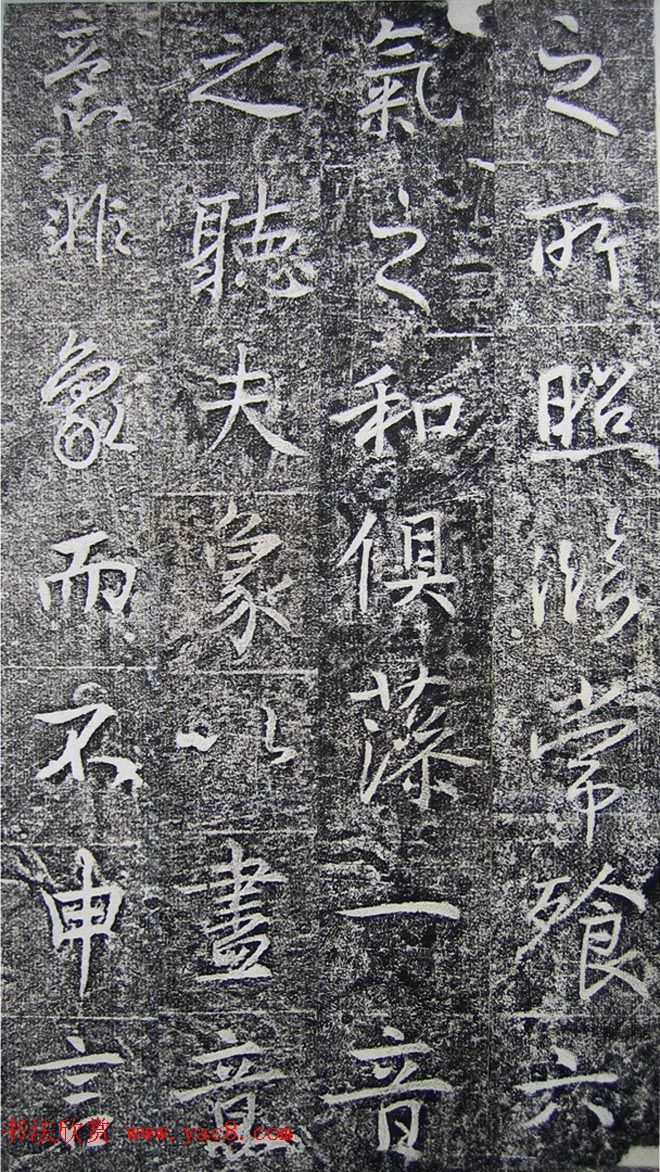 之所照臨常飱六
氣之和俱藻一音
之聽夫象以盡意
意非象而不申言
书法欣赏 www.yac8.com